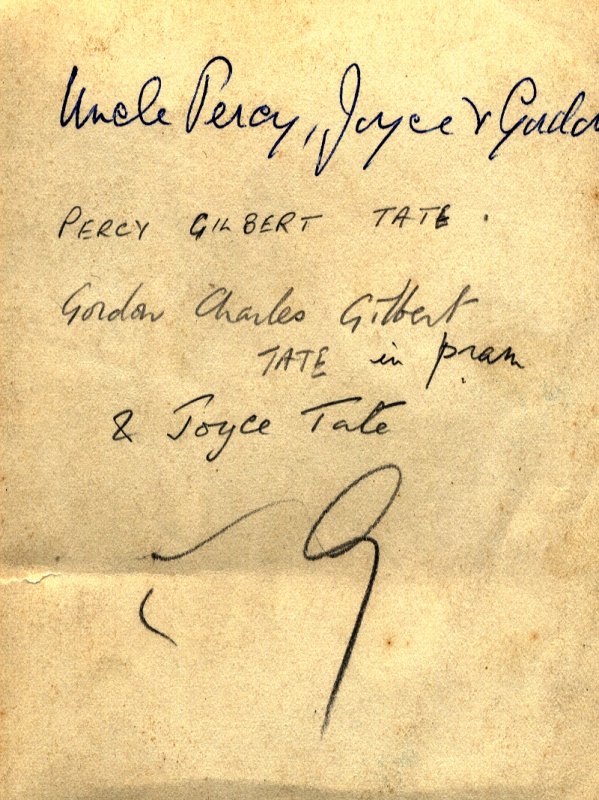 Uncle Percy, Joyce & Gordon
PERCY GILBERT TATE.
Gordon Charles Gilbert
TATE in pram
& Joyce Tate
9